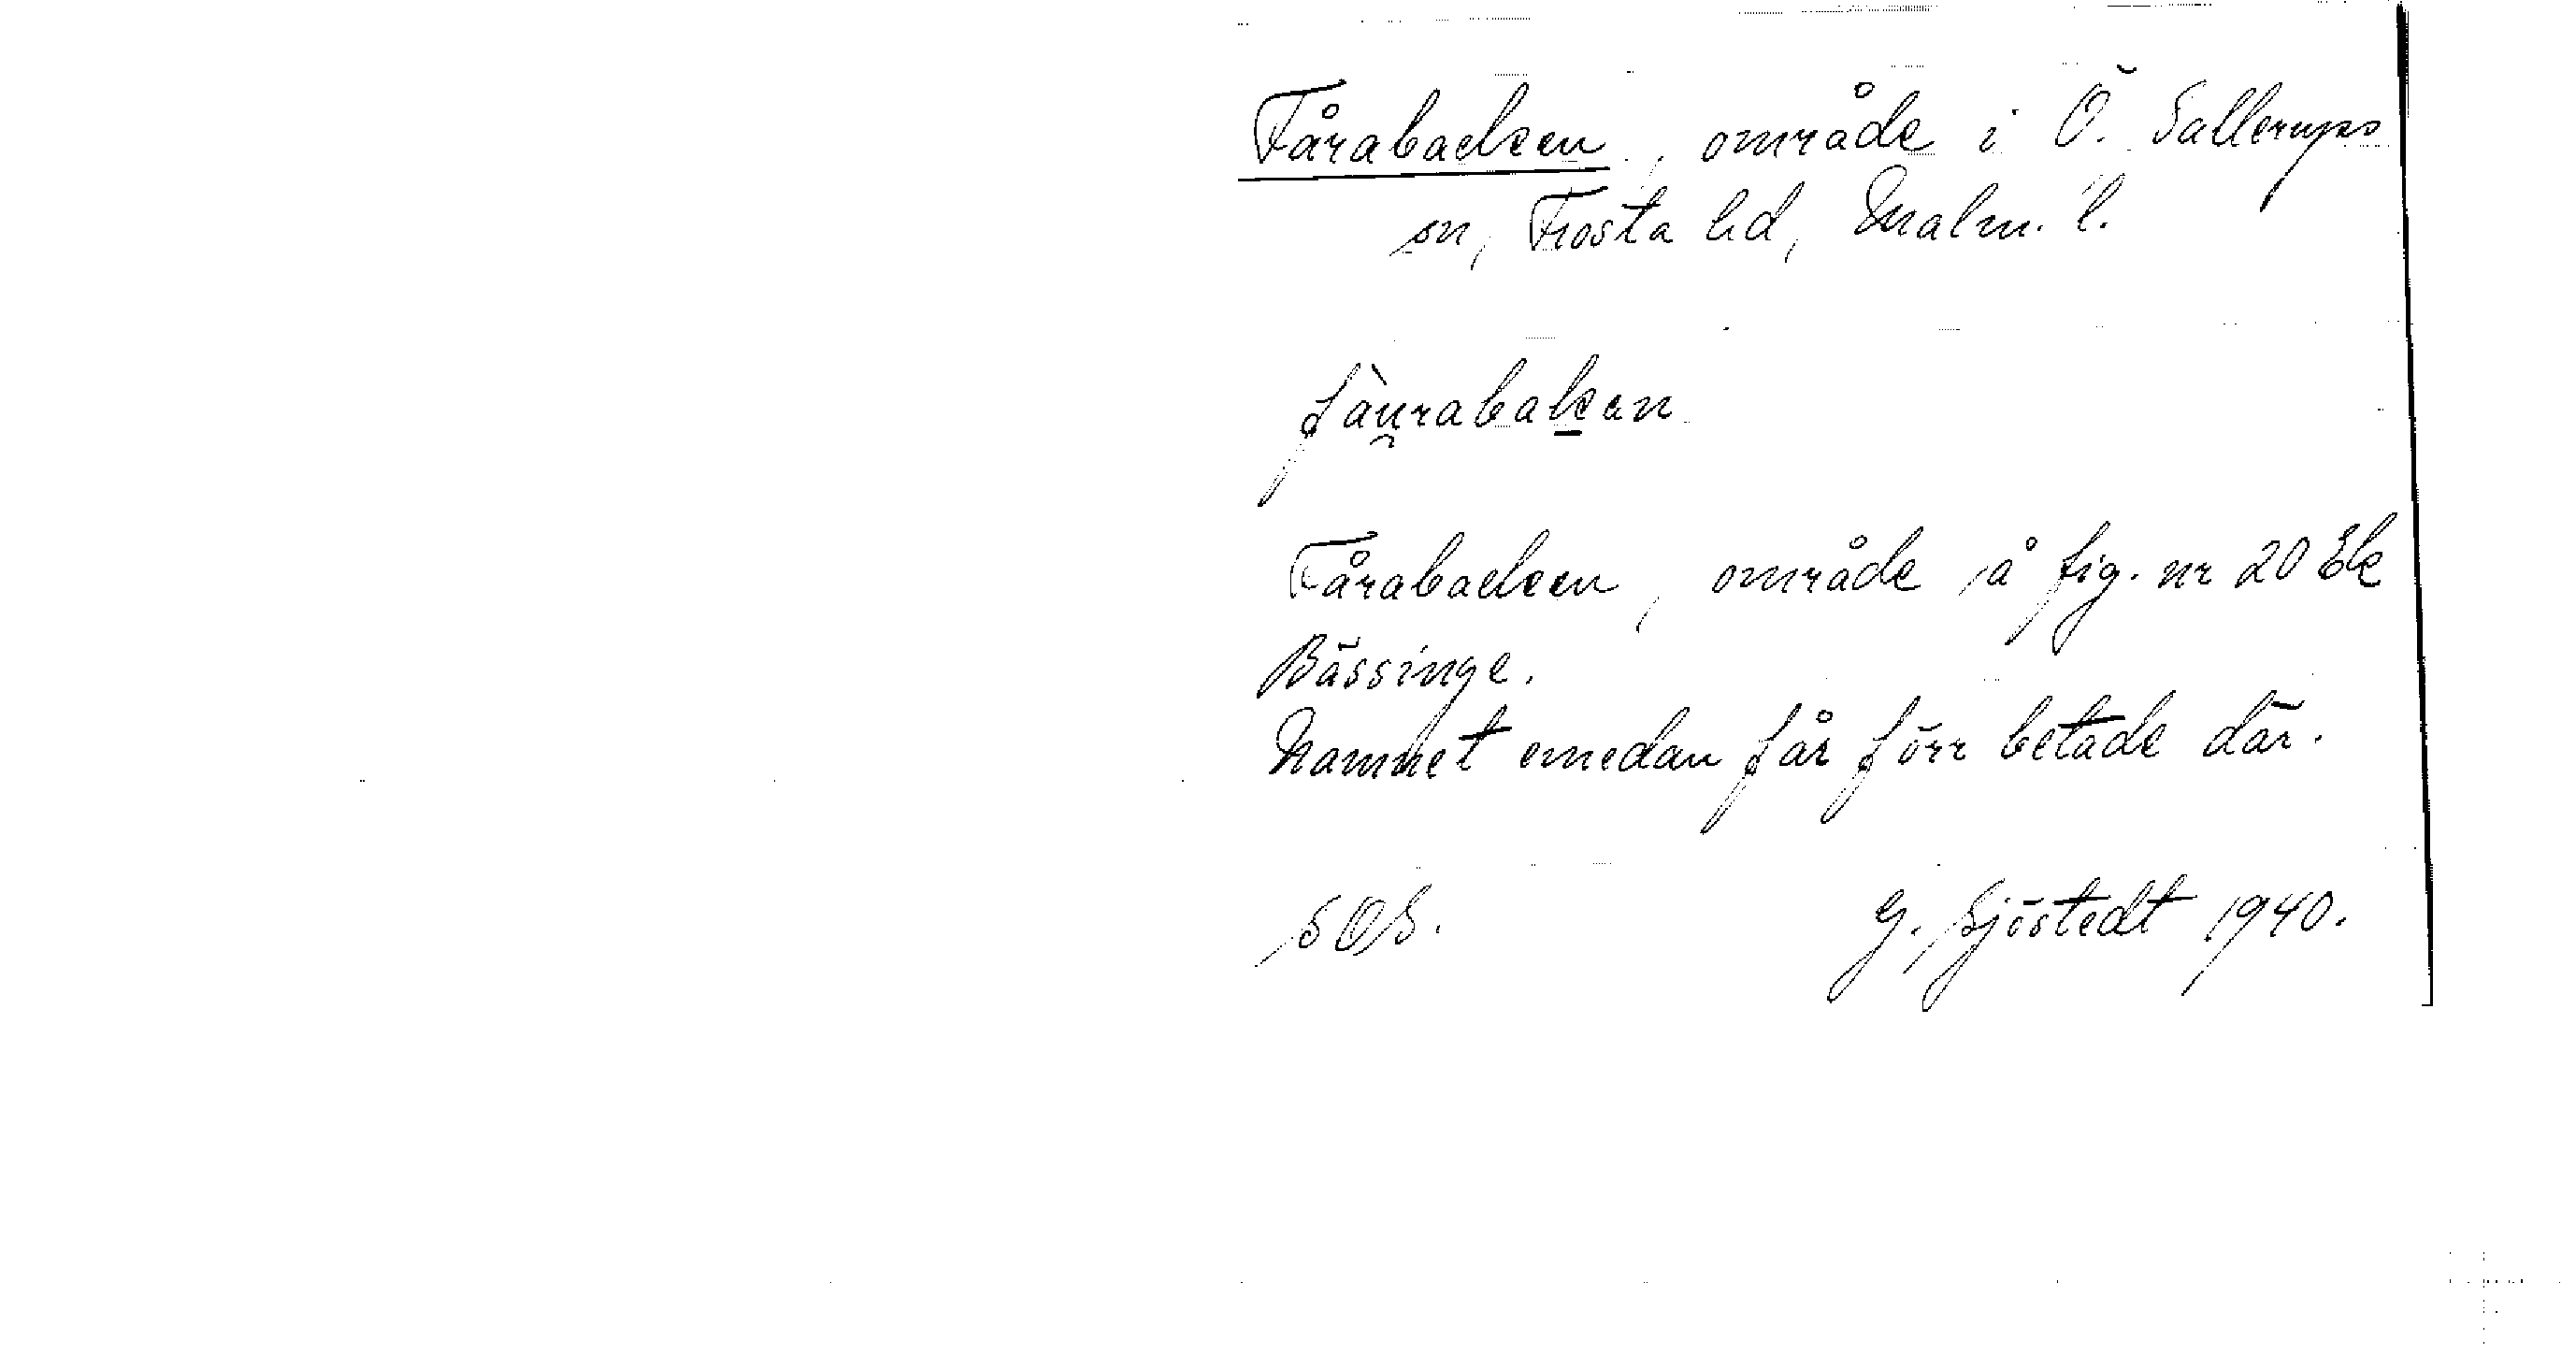 Fårabacken, område i Ö. Sallerups
sn, Frosta hd, Malm. l.
fàu̯rabak̲an
Fårabacken, område å fig. nr 20 Ek
Bässinge.
Namnet emedan får förr betade där.
SOS. G. Sjöstedt 1940.